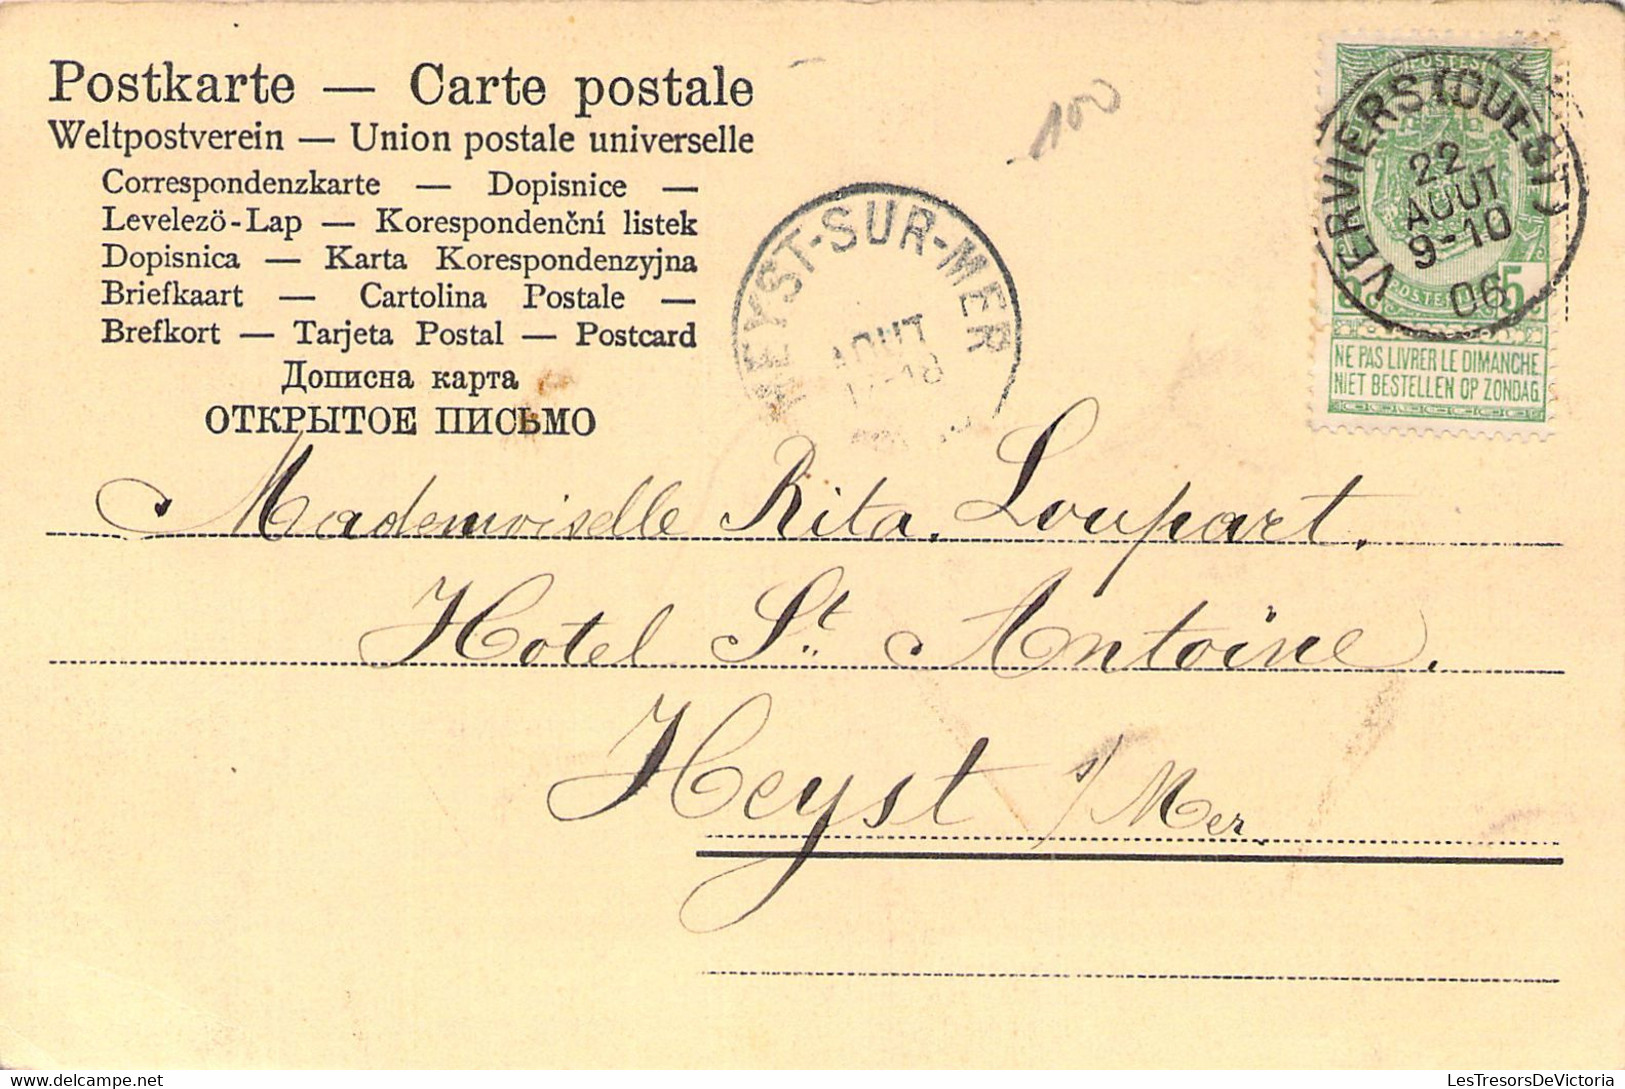 Postkarte — Carte postale
Weltpostverein — Union postale universelle
Correspondenzkarte — Dopisnice —
Levelezö-Lap — Korespondenční listek
Dopisnica — Karta Korespondenzyjna
Briefkaart — Cartolina Postale —
Brefkort — Tarjeta Postal — Postcard
Дописна карта
ОТКРЫТОЕ ПИСЬМО
100
HEYST-SUR-MER
AOUT
POSTES
VERVIERS (OUEST)
22
AOUT
9-10
06
POSTERIJEN
5 5
NE PAS LIVRER LE DIMANCHE
NIET BESTELLEN OP ZONDAG
Mademoiselle Rita Loupart.
Hotel St. Antoine.
Heyst s/ Mer
delcampe.net
LesTresorsDeVictoria